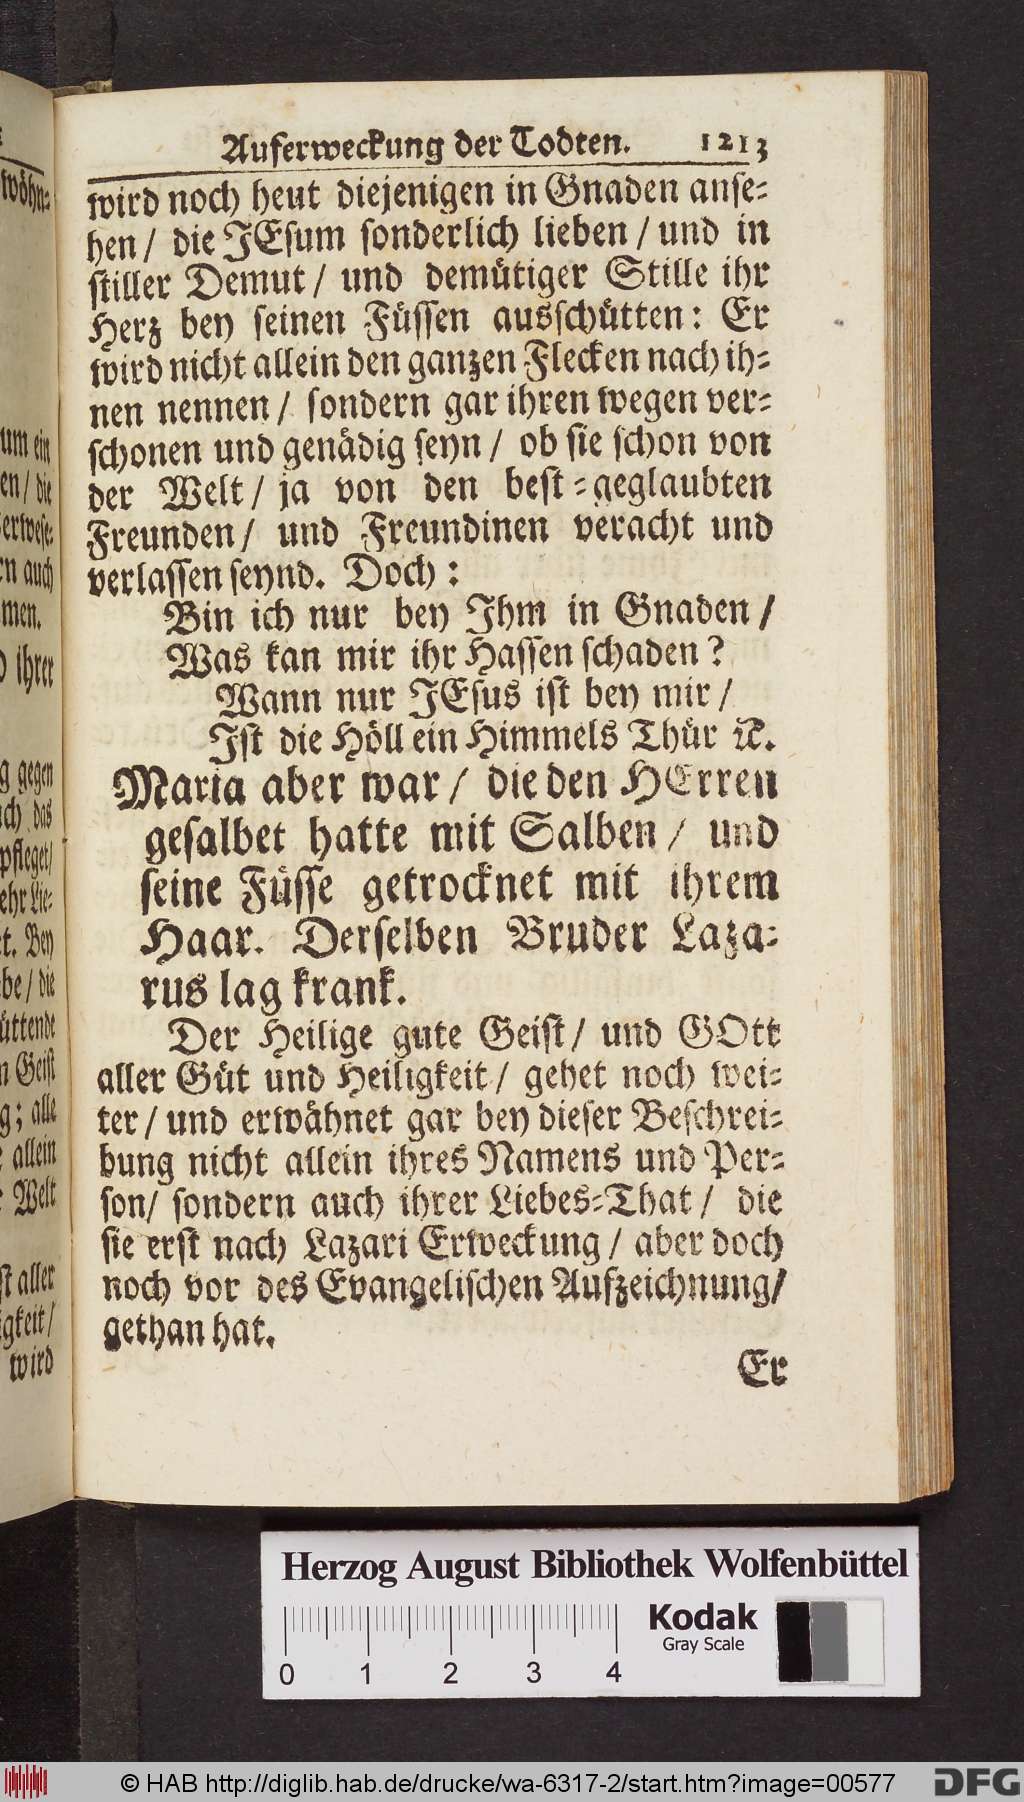 Auferweckung der Todten. 1213
wird noch heut diejenigen in Gnaden anse-
hen / die JEsum sonderlich lieben / und in
stiller Demut / und demütiger Stille ihr
Herz bey seinen Füssen ausschütten: Er
wird nicht allein den ganzen Flecken nach ih-
nen nennen / sondern gar ihren wegen ver-
schonen und genädig seyn / ob sie schon von
der Welt / ja von den best-geglaubten
Freunden / und Freundinen veracht und
verlassen seynd. Doch:
Bin ich nur bey Ihm in Gnaden /
Was kan mir ihr Hassen schaden?
Wann nur JEsus ist bey mir /
Ist die Höll ein Himmels Thür ꝛc.
Maria aber war / die den HErren
gesalbet hatte mit Salben / und
seine Füsse getrocknet mit ihrem
Haar. Derselben Bruder Laza-
rus lag krank.
Der Heilige gute Geist / und GOtt
aller Güt und Heiligkeit / gehet noch wei-
ter / und erwähnet gar bey dieser Beschrei-
bung nicht allein ihres Namens und Per-
son / sondern auch ihrer Liebes-That / die
sie erst nach Lazari Erweckung / aber doch
noch vor des Evangelischen Aufzeichnung /
gethan hat.
Er
wöhn-
um ein
en / die
erwese-
rn auch
men.
ihrer
g gegen
uch das
pfleget /
ehr Lie-
et. Bey
be / die
üttende
n Geist
g; alle
allein
Welt
st aller
igkeit /
wird
Herzog August Bibliothek Wolfenbüttel
Kodak
Gray Scale
0 1 2 3 4
© HAB http://diglib.hab.de/drucke/wa-6317-2/start.htm?image=00577
DFG